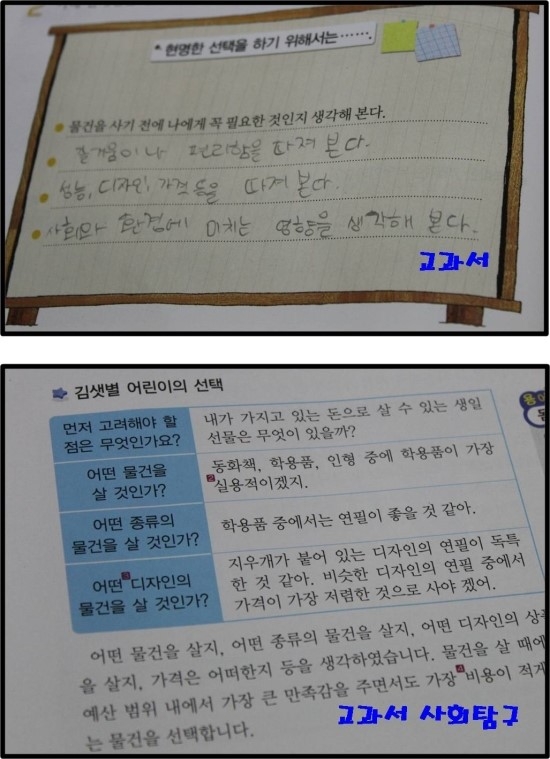 * 현명한 선택을 하기 위해서는…….
물건을 사기 전에 나에게 꼭 필요한 것인지 생각해 본다.
즐거움이나 편리함을 따져 본다.
성능, 디자인, 가격 등을 따져 본다.
사회와 환경에 미치는 영향을 생각해 본다.
교과서
김샛별 어린이의 선택
먼저 고려해야 할
점은 무엇인가요?
내가 가지고 있는 돈으로 살 수 있는 생일
선물은 무엇이 있을까?
어떤 물건을
살 것인가?
동화책, 학용품, 인형 중에 학용품이 가장
2실용적이겠지.
어떤 종류의
물건을 살 것인가?
학용품 중에서는 연필이 좋을 것 같아.
어떤 3디자인의
물건을 살 것인가?
지우개가 붙어 있는 디자인의 연필이 독특
한 것 같아. 비슷한 디자인의 연필 중에서
가격이 가장 저렴한 것으로 사야 겠어.
어떤 물건을 살지, 어떤 종류의 물건을 살지, 어떤 디자인의
을 살지, 가격은 어떠한지 등을 생각하였습니다. 물건을 살 때에
예산 범위 내에서 가장 큰 만족감을 주면서도 가장 4비용이
는 물건을 선택합니다.
교과서 사회탐구